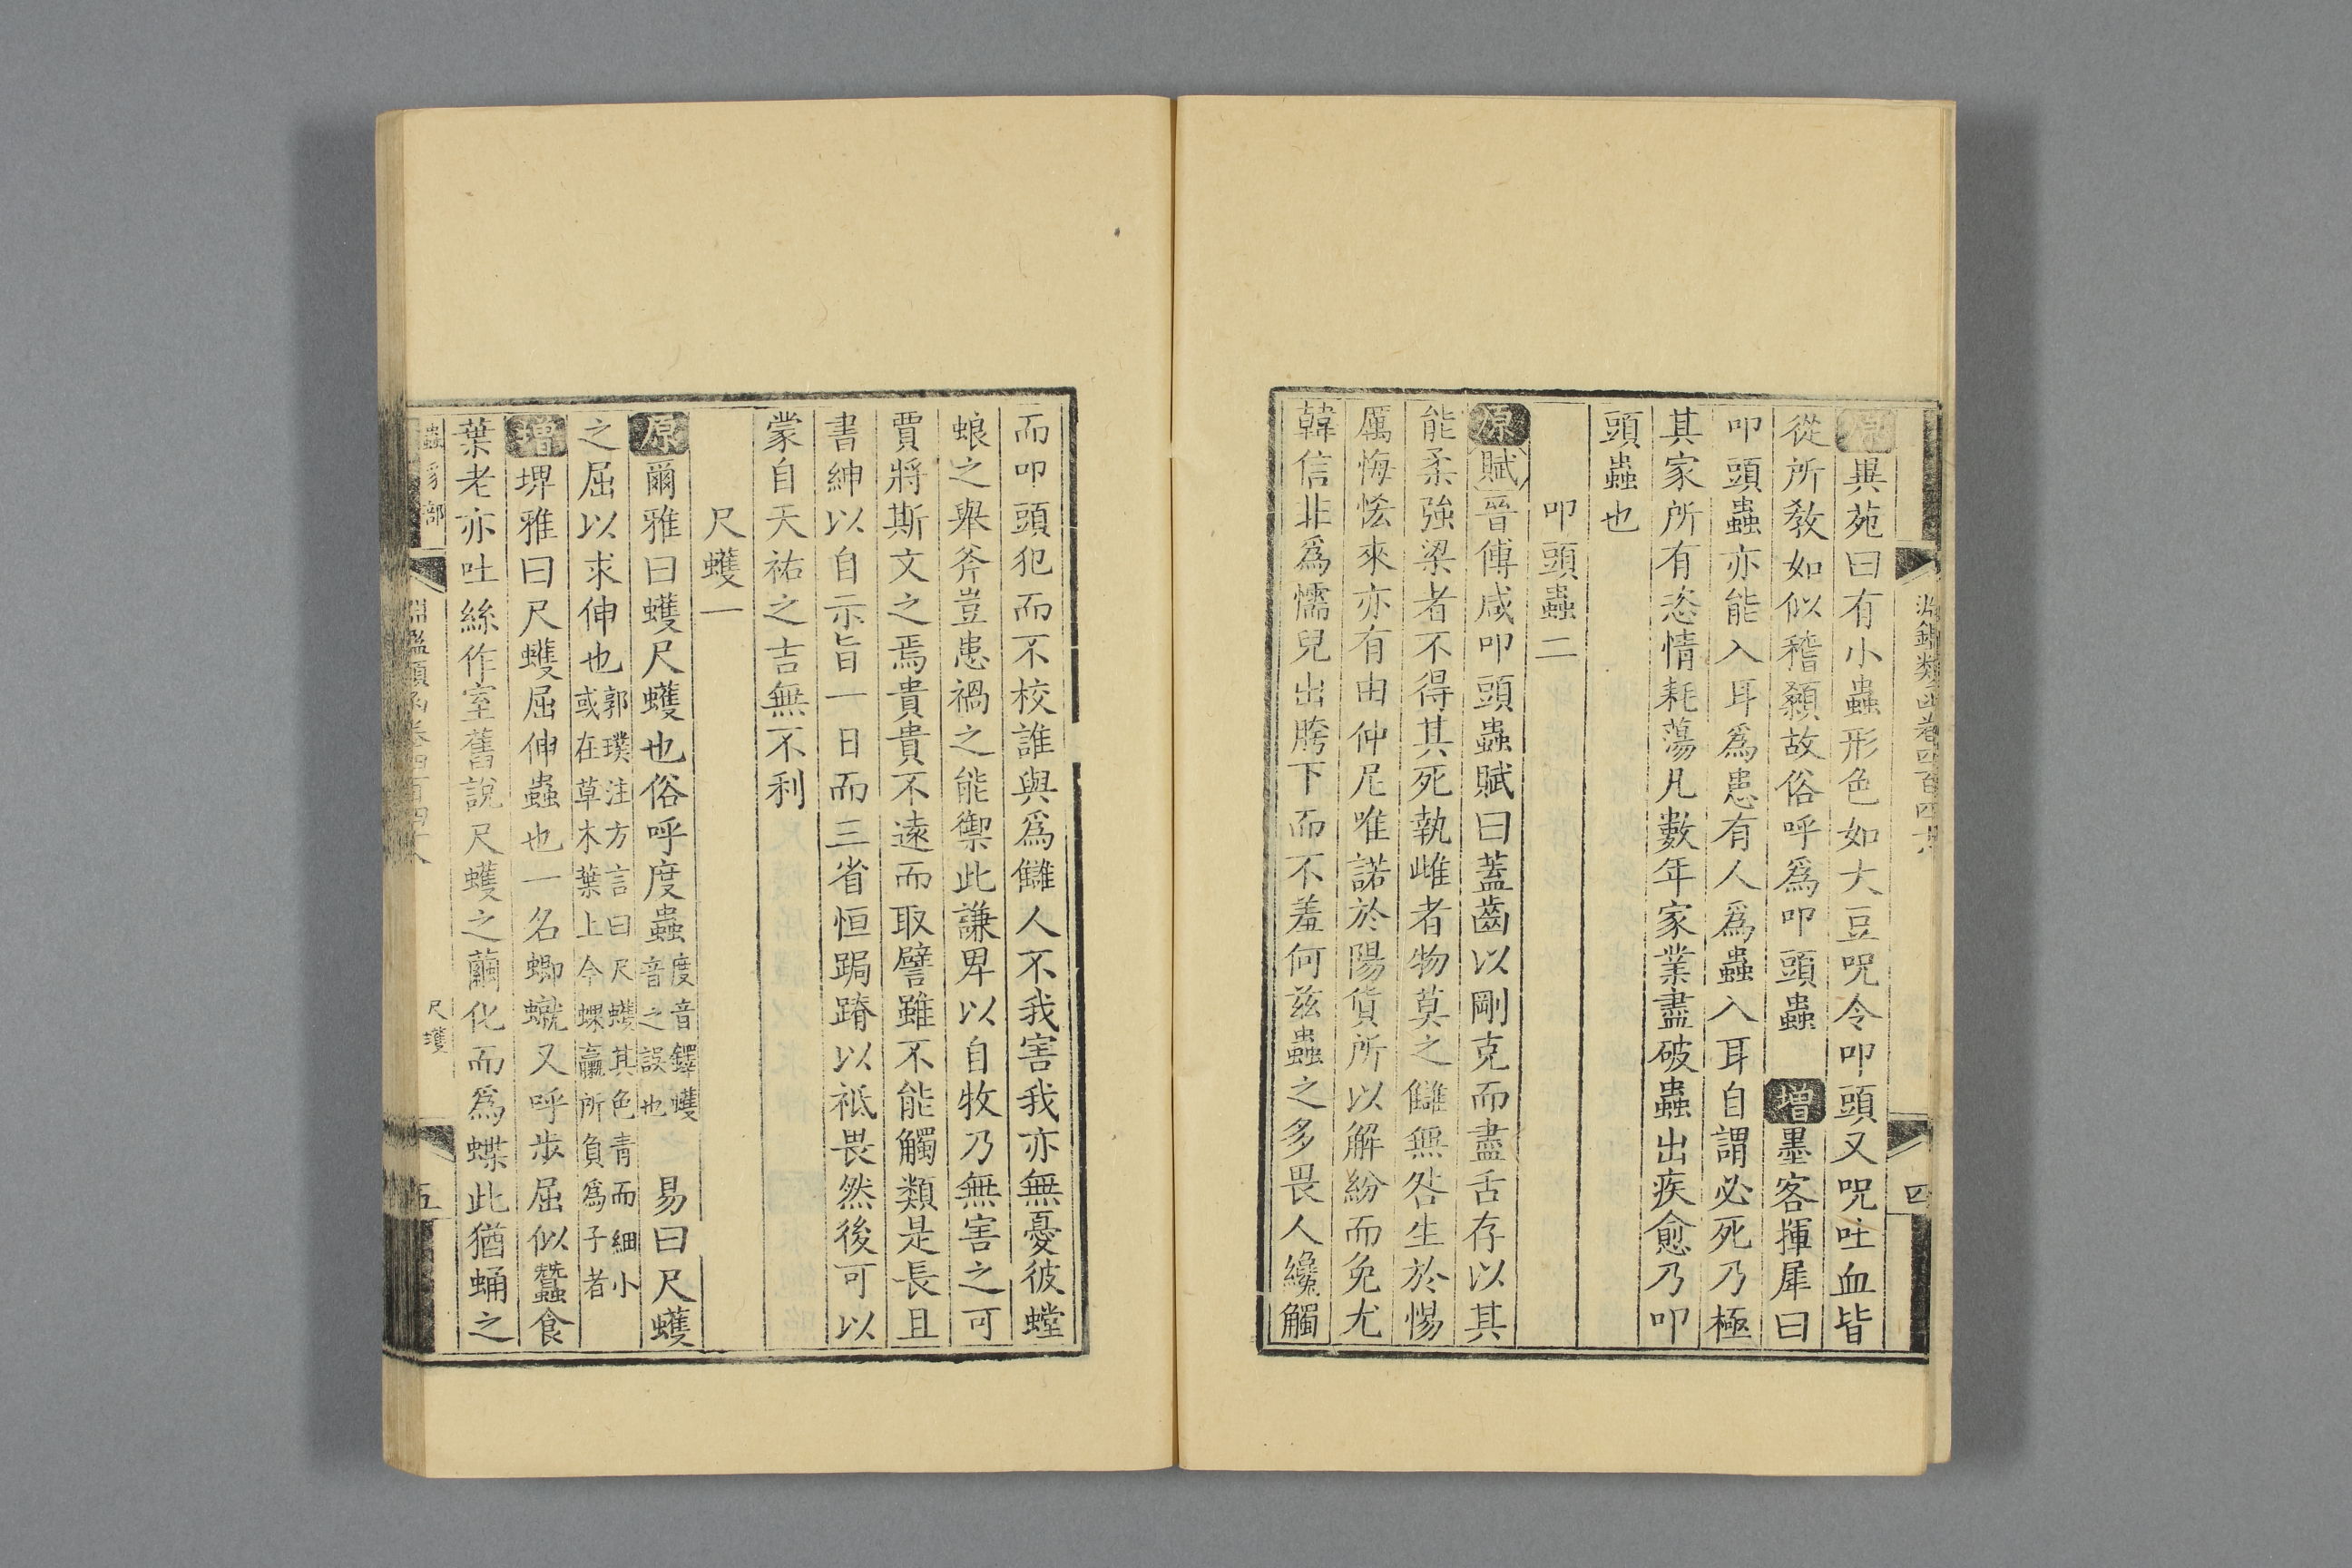 原異苑曰有小蟲形色如大豆呪令叩頭又呪吐血皆
從所教如似稽顙故俗呼爲叩頭蟲　增墨客揮犀曰
叩頭蟲亦能入耳爲患有人爲蟲入耳自謂必死乃極
其家所有恣情耗蕩凡數年家業盡破蟲出疾愈乃叩
頭蟲也
叩頭蟲二
原賦晉傅咸叩頭蟲賦曰蓋齒以剛克而盡舌存以其
能柔強梁者不得其死執雌者物莫之讎無咎生於惕
厲悔恡來亦有由仲尼唯諾於陽貨所以解紛而免尤
韓信非爲懦兒出胯下而不羞何茲蟲之多畏人纔觸
淵鑑類函卷四百四十八
四
而叩頭犯而不校誰與爲讎人不我害我亦無憂彼螳
蜋之舉斧豈患禍之能禦此謙卑以自牧乃無害之可
賈將斯文之焉貴貴不遠而取譬雖不能觸類是長且
書紳以自示旨一日而三省恒跼蹐以祗畏然後可以
蒙自天祐之吉無不利
尺蠖一
原爾雅曰蠖尺蠖也俗呼度蟲度音鐸蠖音之誤也　易曰尺蠖
之屈以求伸也郭璞注方言曰尺蠖其色青而細小或在草木葉上今蜾蠃所負爲子者
增埤雅曰尺蠖屈伸蟲也一名蝍𧑙又呼步屈似蠶食
葉老亦吐絲作室舊說尺蠖之繭化而爲蝶此猶蛹之
蟲豸部
淵鑑類函卷四百四十八
尺蠖
五